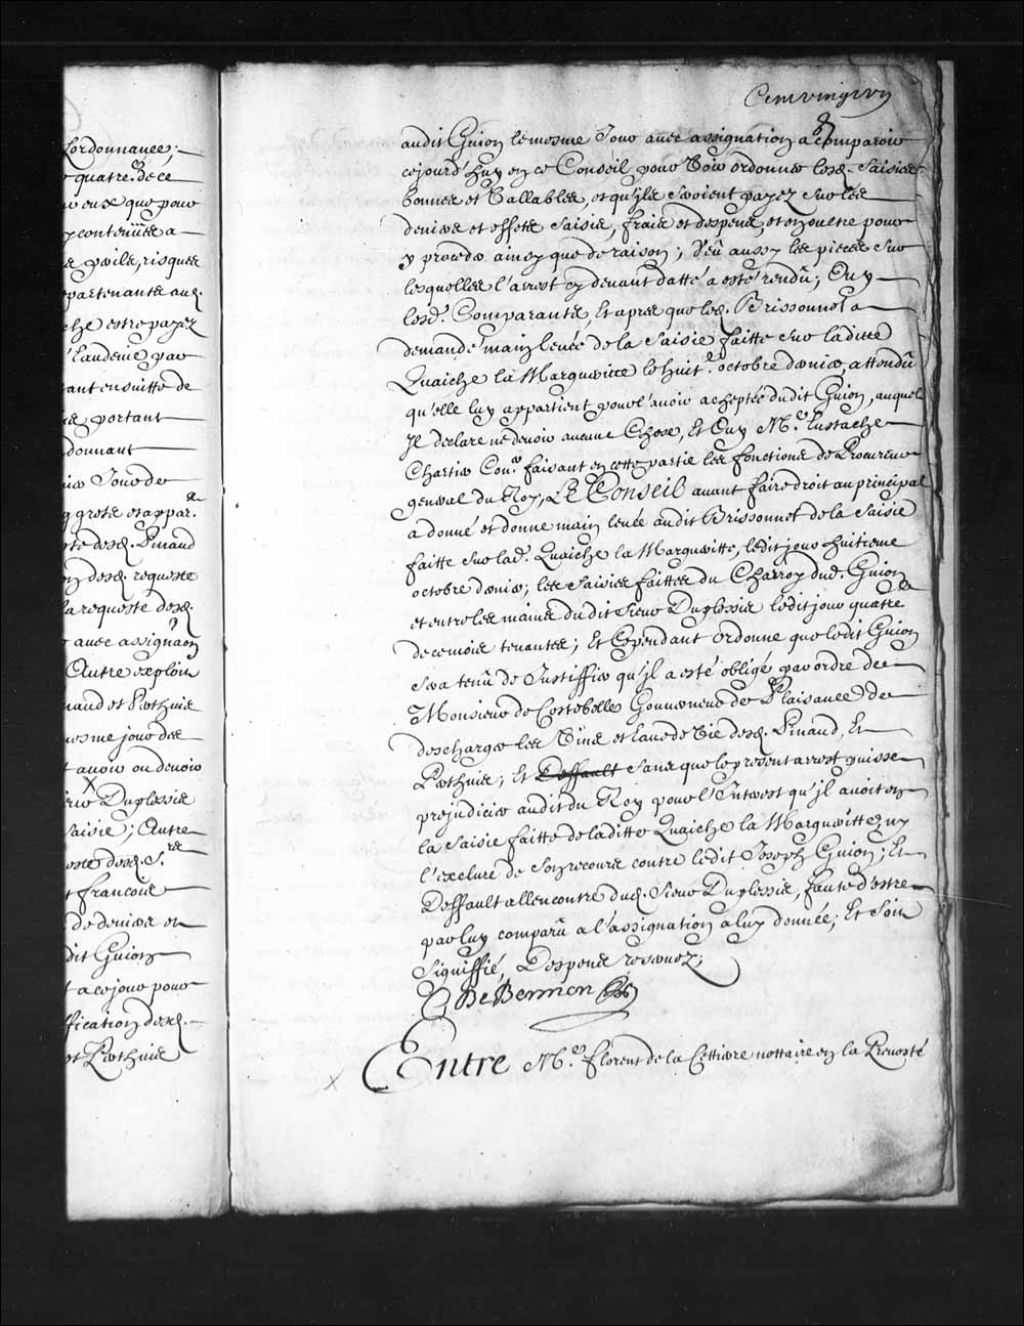 l'ordonnance;
quatre de ce
eux que pour
contenües a
perils, risques
partenants aud.
che estre payez
l'audeme par
tant ensuitte de
portant
donnant
Jour de
grosse et appar.
desd. Pinaud
desd. requeste
la requeste desd.
avec assignaon
Autre exploit
naud et Perthuis
mesme jour des
avoir ou devoir
x
Duplessis
saisie; Autre
desd. S.rs
francois
de deniers et
dit Guion
a ce jour pour
fication desd.
et Perthuis
Cent vingt vn
audit Guion le mesme Jour avec assignation a comparoir
cejourd'huy en ce Conseil pour Voir ordonner lesd. Saisies
bonnes et Vallables, et qu'ils seroient payez sur les
deniers et effets Saisis, frais et despens, et en oultre pour
y proceder ainsy que de raison; Veû aussy les pieces Sur
lesquelles l'arrest cy devant datté a esté rendû; Ouy
lesd. Comparants, Et apres que led. Brissonnet a
demandé main levée de la Saisie faitte Sur laditte
Quaiche la Margueritte le huit.e octobre dernier, attendû
qu'elle luy appartient pour l'avoir acheptée dudit Guion, auquel
Il declare ne devoir aucune Chose, Et Ouy M.e Eustache
Chartier Con.er faisant en cette partie les fonctions de Procureur
general du Roy, LE Conseil avant faire droit au principal
a donné et donne main levée audit Brissonnet de la Saisie
faitte Sur lad. Quaiche la Margueritte, ledit jour huitieme
octobre dernier; les Saisies faittes du Charroy dud. Guion
et entre les mains dudit Sieur Duplessis ledit jour quatre
de ce mois tenantes; Et Cependant ordonne que ledit Guion
Sera tenû de Justiffier qu'il a esté obligé par ordre de
Monsieur de Costebelle Gouverneur de Plaisance de
descharger les Vins et Eaux de Vie desd. Pinaud, Et
Perthuis; Et Deffault Sans que le present arrest puisse
prejudicier audit du Roy pour l'Interest qu'il avoit en
la Saisie faitte de laditte Quaiche la Margueritte, ny
l'exclure de Son recours contre ledit Joseph Guion; Et
Deffault allencontre dud. Sieur Duplessis, faute d'estre
par luy comparû a l'assignation a luy donnée; Et Soit
Signiffié, Despens reservez;
De Bermen
x Entre M.e Florent de la Cettiere nottaire en la Prevosté